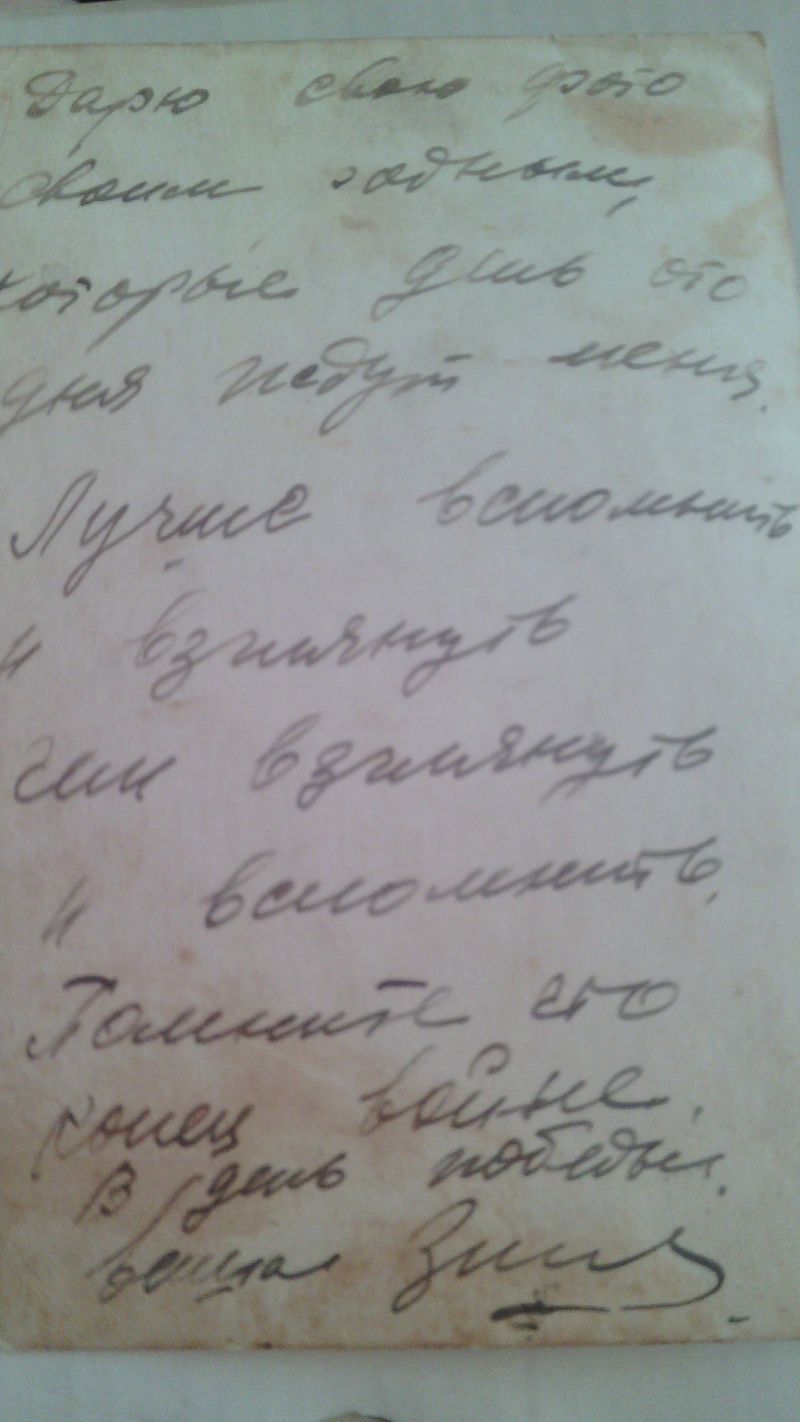 Дарю свою фото
своим родным,
которые день ото
дня ждут меня.
Лучше вспомнить
и взглянуть
чем взглянуть
и вспомнить.
Помните это
конец войне.
В день победы.
ваша Зина